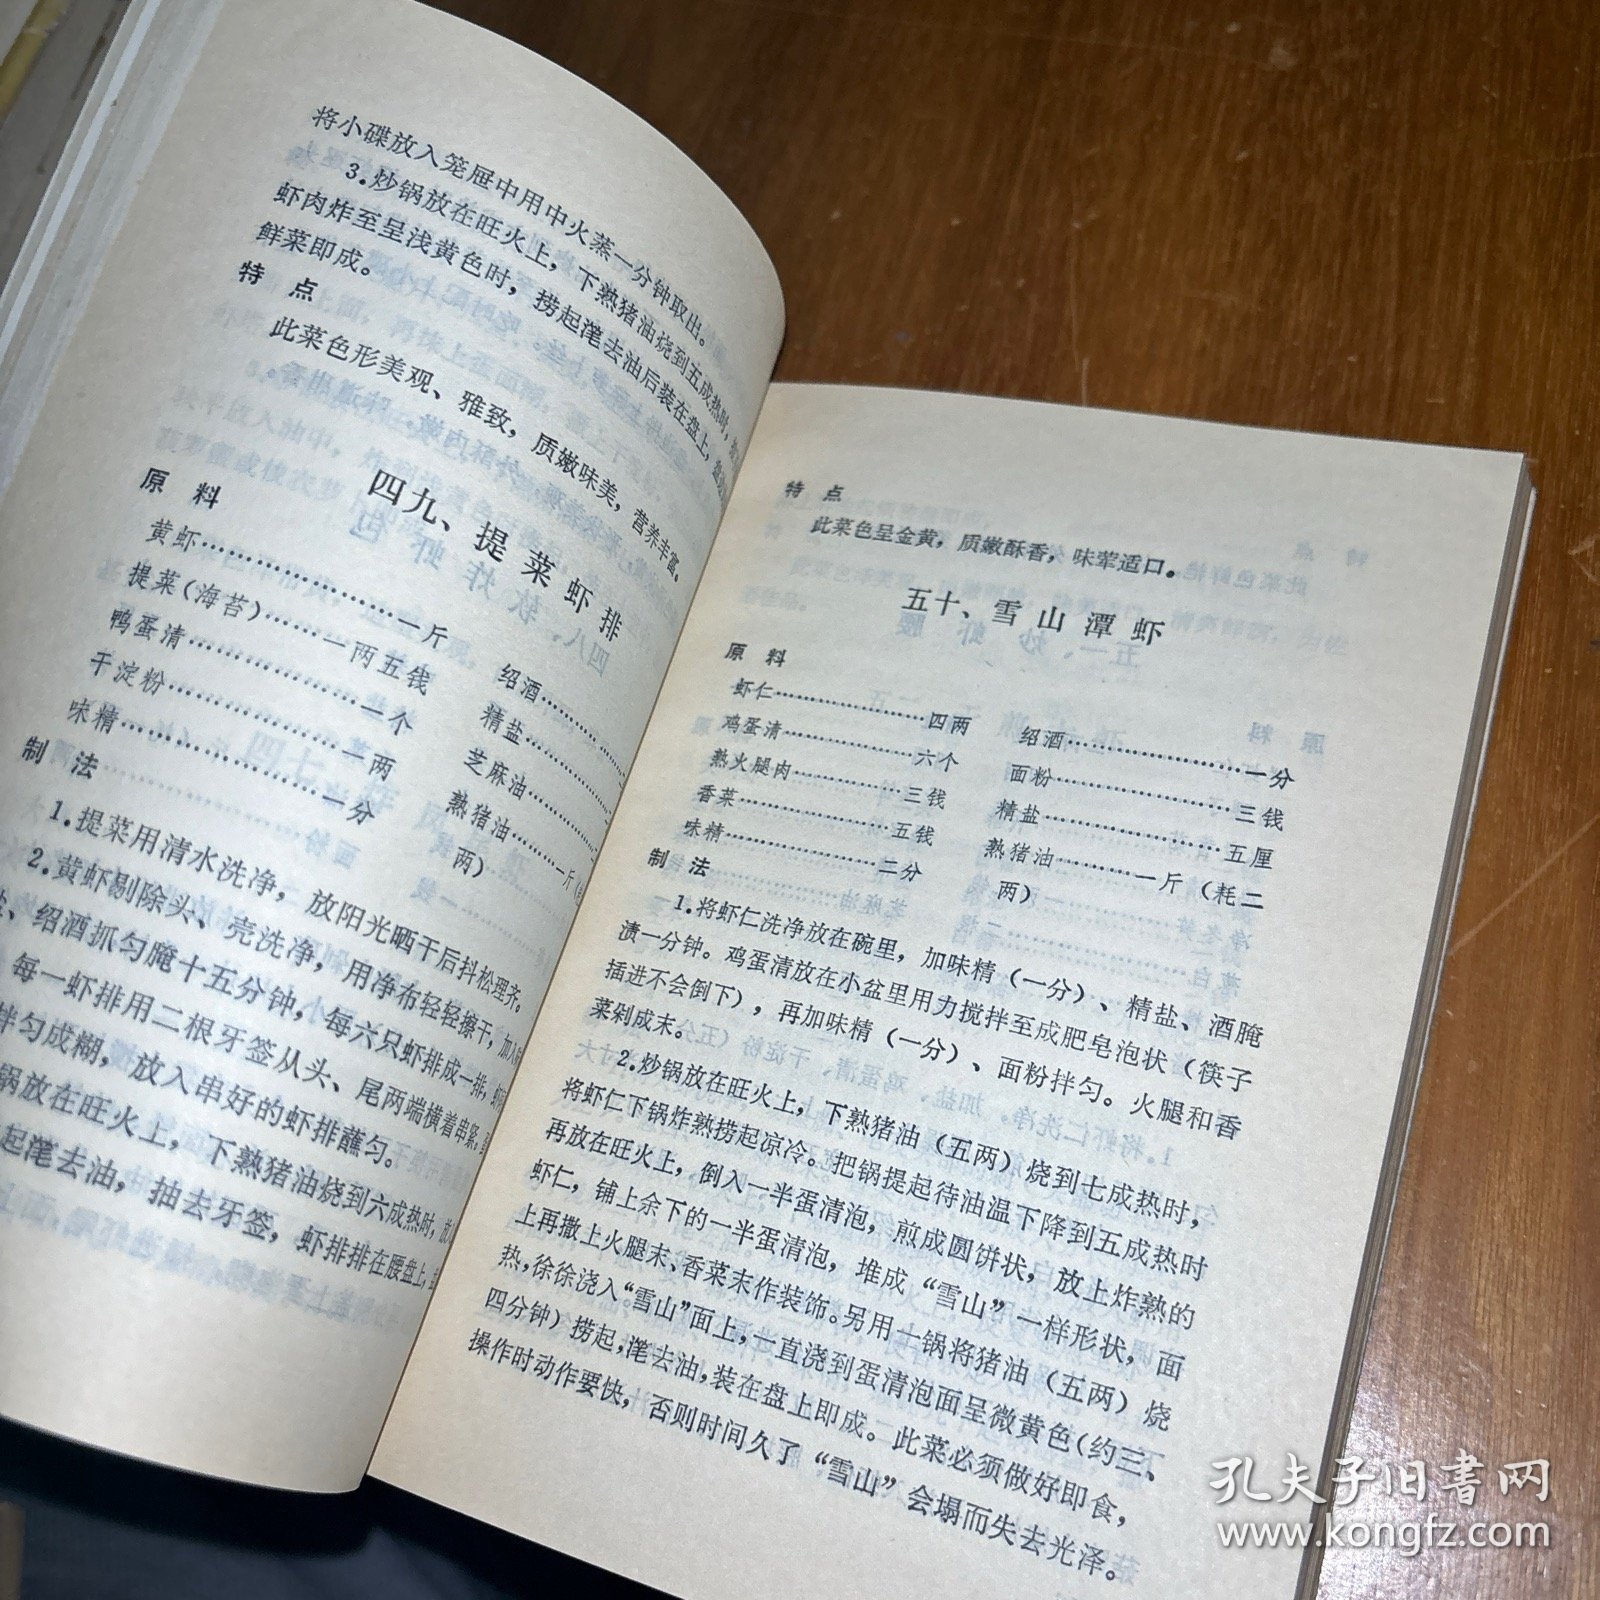 将小碟放入笼屉中用中火蒸一分钟取出。
3.炒锅放在旺火上，下熟猪油烧到五成热时，
虾肉炸至呈浅黄色时，捞起滗去油后装在盘上，
鲜菜即成。
特 点
此菜色形美观、雅致，质嫩味美，营养丰富。
四九、提菜虾排
原 料
黄虾……………………一斤
提菜(海苔)……一两五钱
鸭蛋清……………………一个
干淀粉……………………一两
味精……………………一分
绍酒……
精盐……
芝麻油……
熟猪油……一斤(
两)
制 法
1.提菜用清水洗净，放阳光晒干后抖松理齐。
2.黄虾剔除头、壳洗净，用净布轻轻擦干，加入
、绍酒抓匀腌十五分钟，每六只虾排成一排，
每一虾排用二根牙签从头、尾两端横着串紧。
拌匀成糊，放入串好的虾排蘸匀。
锅放在旺火上，下熟猪油烧到六成热时，放
起滗去油，抽去牙签，虾排排在腰盘上，
特 点
此菜色呈金黄，质嫩酥香，味荤适口。
五十、雪山潭虾
原 料
虾仁……………………四两
鸡蛋清……………………六个
熟火腿肉……………………三钱
香菜……………………五钱
味精……………………二分
绍酒……………………一分
面粉……………………三钱
精盐……………………五厘
熟猪油…………一斤（耗二
两）
制 法
1.将虾仁洗净放在碗里，加味精（一分）、精盐、酒腌
渍一分钟。鸡蛋清放在小盆里用力搅拌至成肥皂泡状（筷子
插进不会倒下），再加味精（一分）、面粉拌匀。火腿和香
菜剁成末。
2.炒锅放在旺火上，下熟猪油（五两）烧到七成热时，
将虾仁下锅炸熟捞起凉冷。把锅提起待油温下降到五成热时
再放在旺火上，倒入一半蛋清泡，煎成圆饼状，放上炸熟的
虾仁，铺上余下的一半蛋清泡，堆成“雪山”一样形状，面
上再撒上火腿末、香菜末作装饰。另用一锅将猪油（五两）烧
热，徐徐浇入“雪山”面上，一直浇到蛋清泡面呈微黄色(约三、
四分钟）捞起，滗去油，装在盘上即成。此菜必须做好即食，
操作时动作要快，否则时间久了“雪山”会塌而失去光泽。
孔夫子旧书网
www.kongfz.com